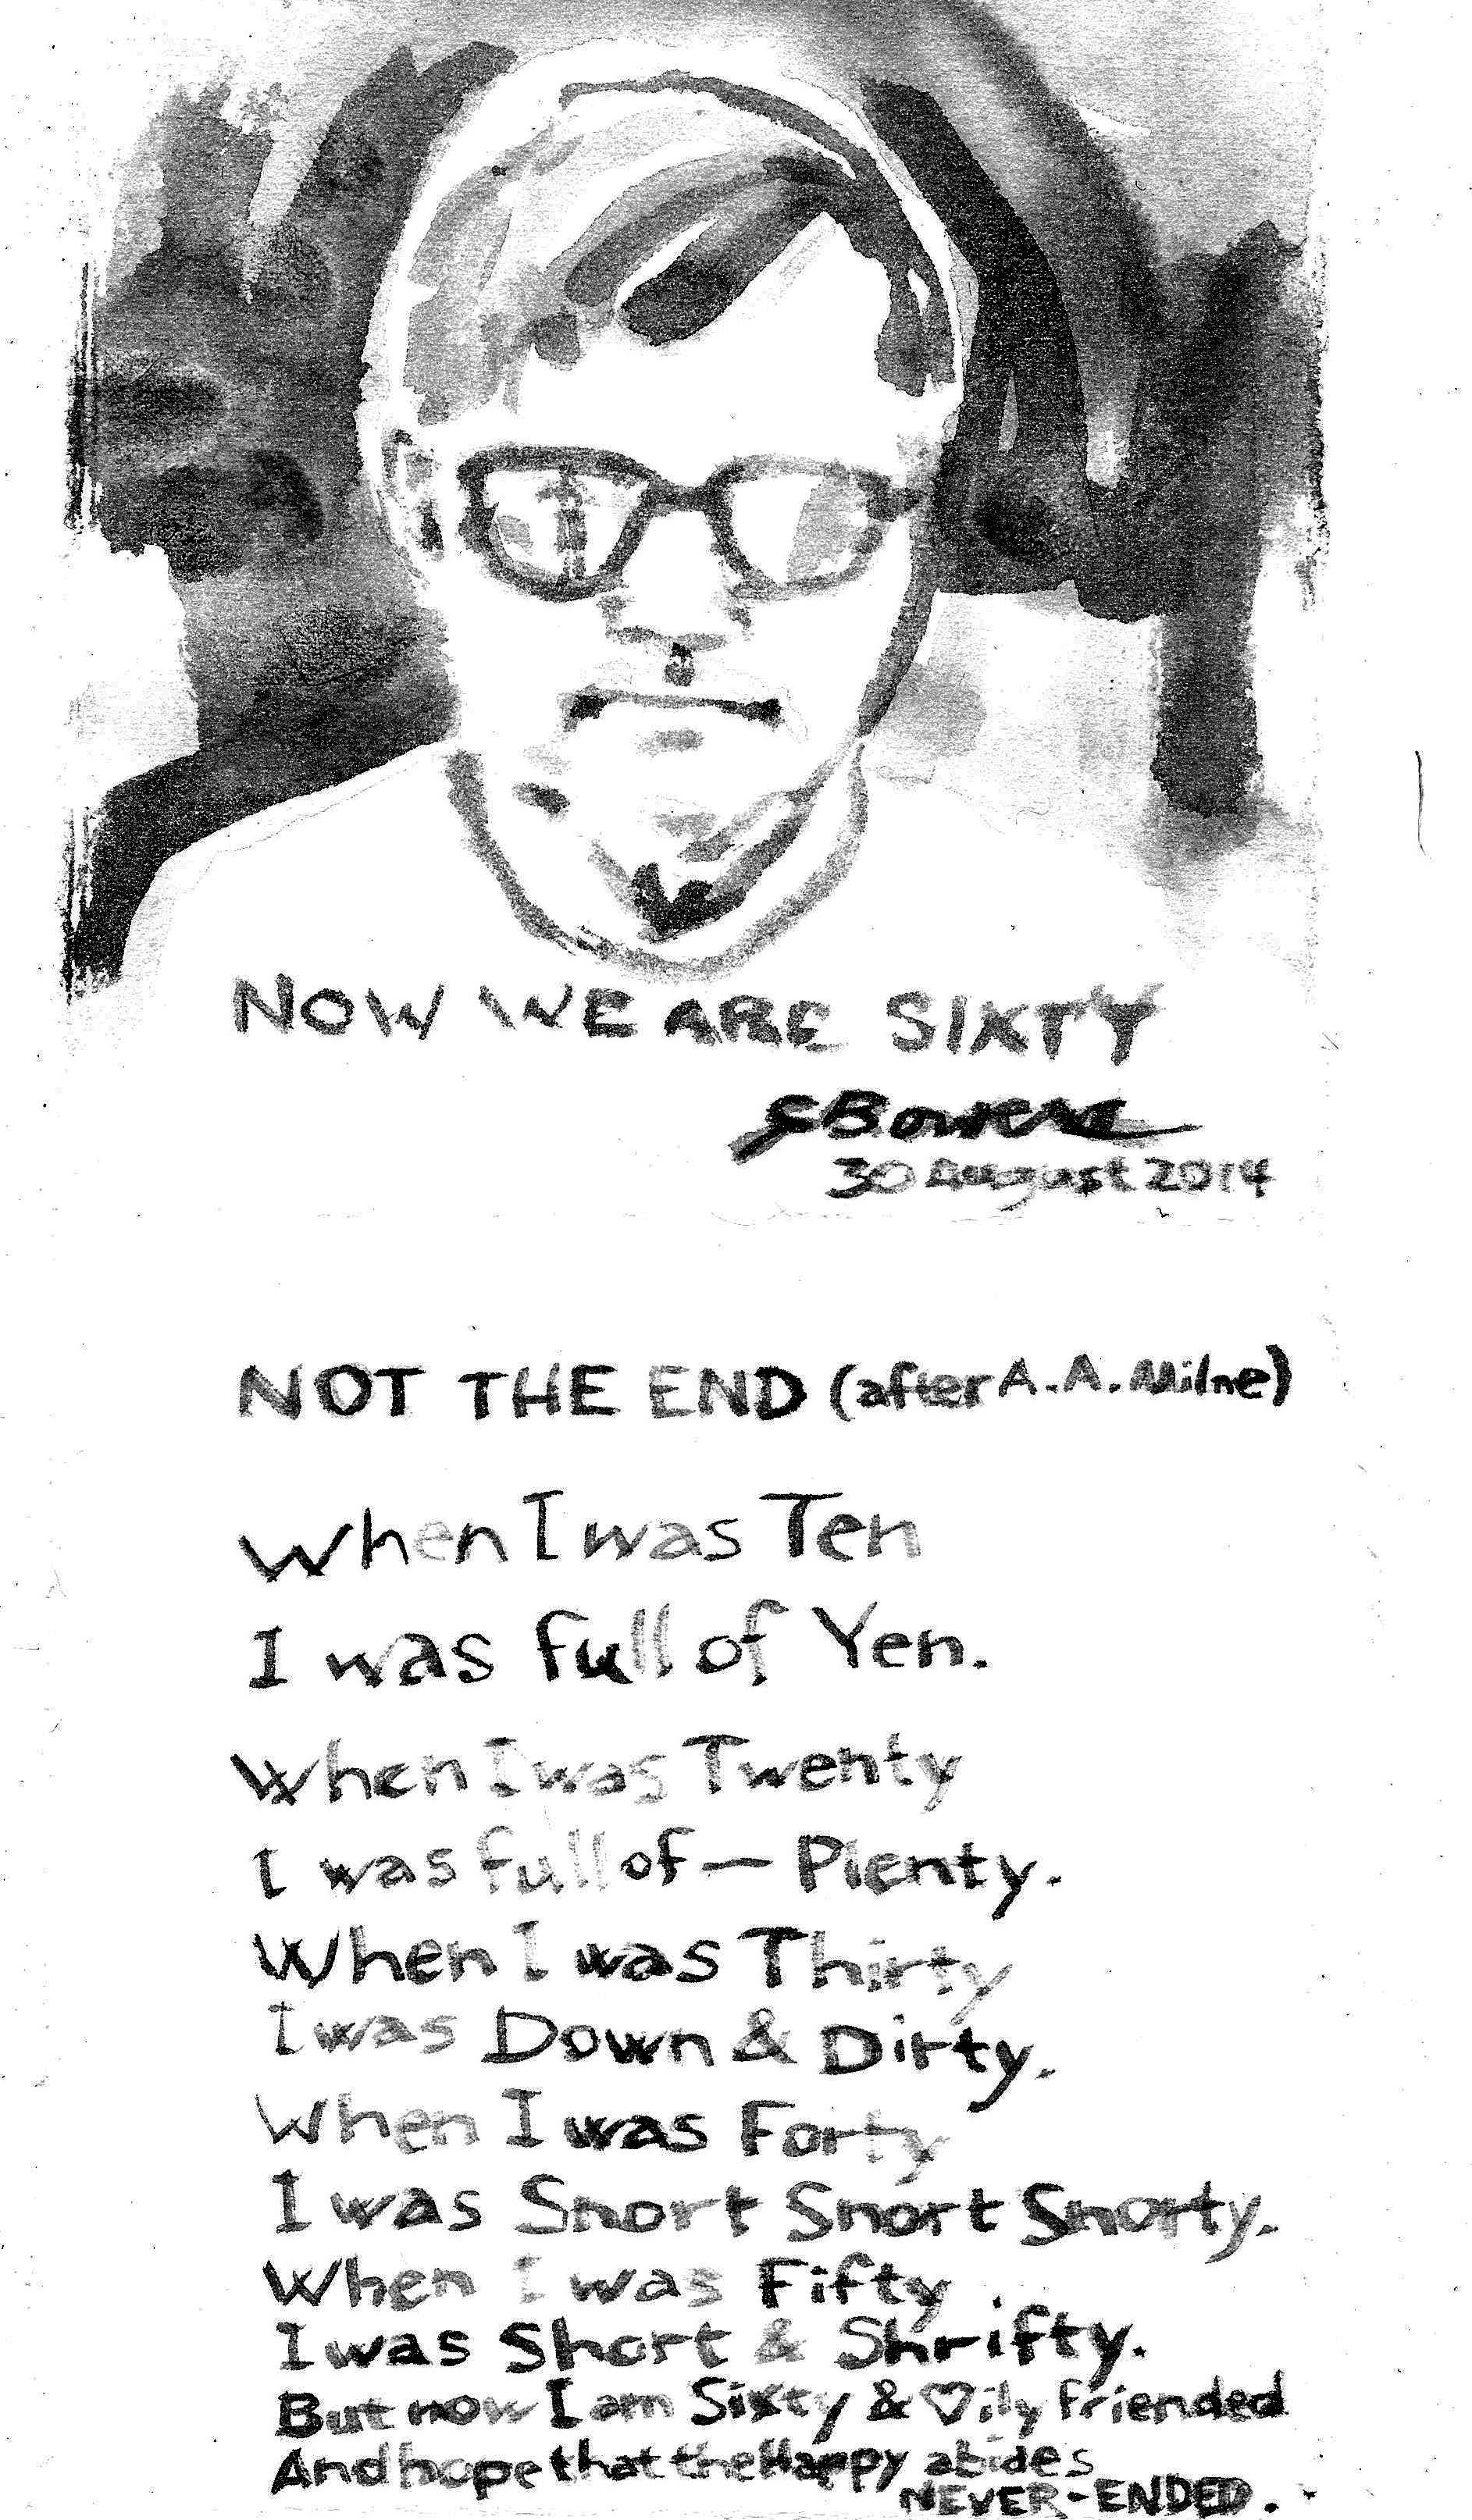 NOW WE ARE SIXTY
SBowers
30 August 2014
NOT THE END (after A.A. Milne)
When I was Ten
I was full of Yen.
When I was Twenty
I was full of — Plenty.
When I was Thirty
I was Down & Dirty.
When I was Forty
I was Snort Snort Snorty.
When I was Fifty
I was Short & Shrifty.
But now I am Sixty & ♡ily friended
And hope that the Happy abides
NEVER-ENDED.